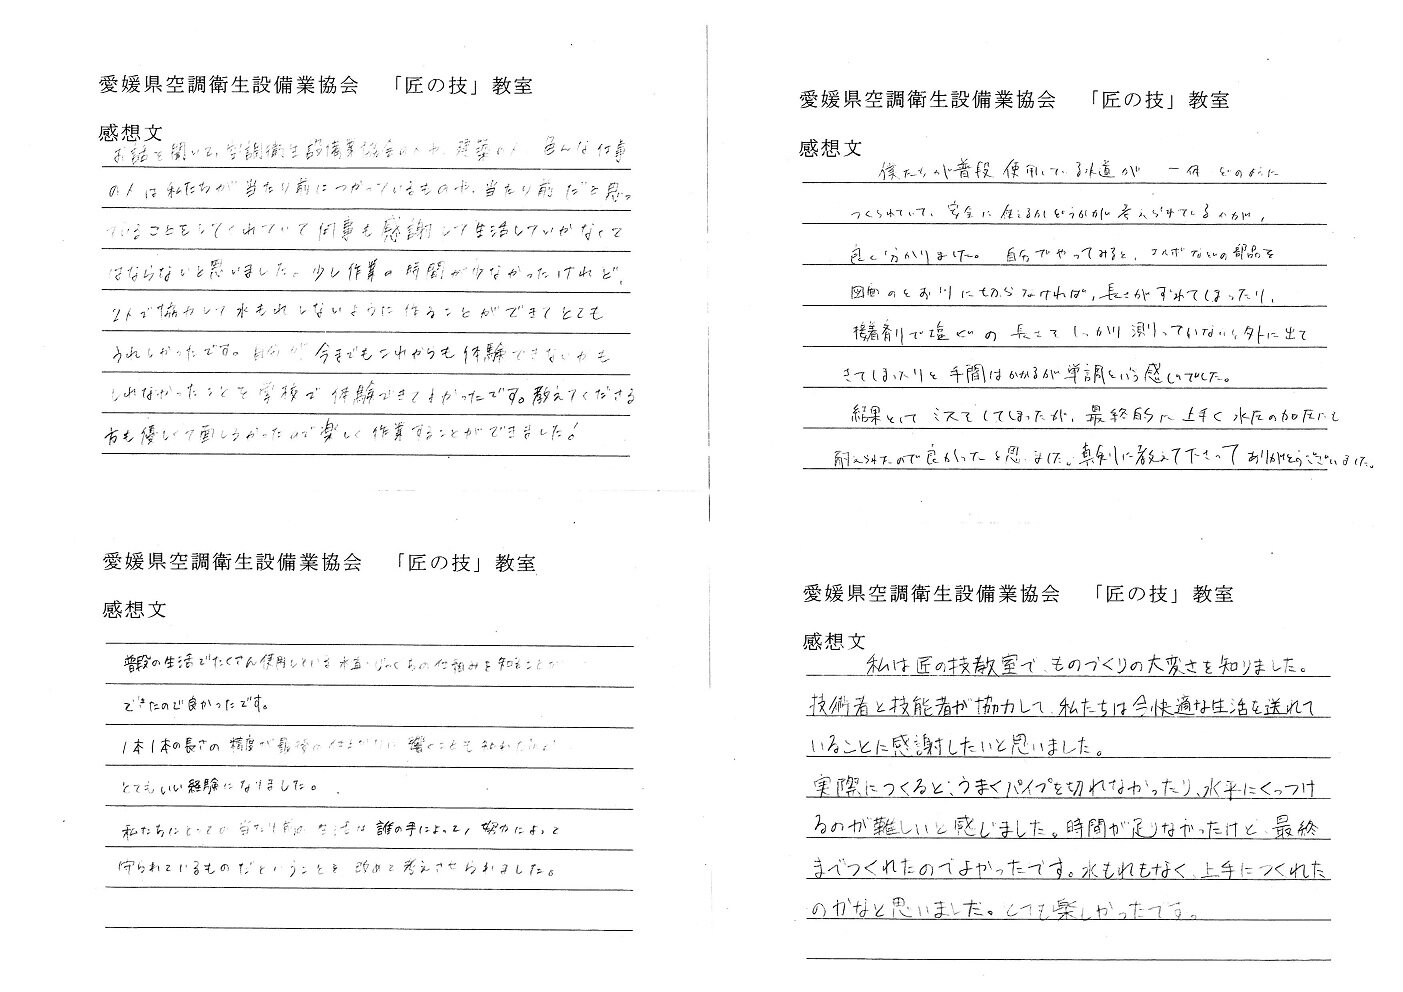 愛媛県空調衛生設備業協会 「匠の技」教室
感想文
お話を聞いて、空調衛生設備業協会の人や、建築の人 色んな仕事
の人は私たちが当たり前につかっているものや、当たり前だと思っ
ていることをしてくれていて何事も感謝して生活していかなくて
はならないと思いました。少し作業の時間が少なかったけれど、
2人で協力して水もれしないように作ることができてとても
うれしかったです。自分が今までもこれからも体験できないかも
しれなかったことを学校で体験できてよかったです。教えてくださる
方も優しくて面しろかったので楽しく作業することができました!
愛媛県空調衛生設備業協会 「匠の技」教室
感想文
僕たちが普段使用している水道が 一体どのように
つくられていて、安全に
良く分かりました。 自分でやってみると、エルボなどの部品を
図面のとおりに切らなければ、長さがずれてしまったり、
接着剤で塩ビの 長さを しっかり測っていないと外に出て
きてしまったりと手間はかかるが単調という感じでした。
結果としてミスをしてしまったが、最終的に上手く水圧の加圧にも
耐えられたので良かったと思いました。真剣に教えて下さってありがとうございました。
愛媛県空調衛生設備業協会 「匠の技」教室
感想文
普段の生活でたくさん使用している水道・じゃぐちの仕組みを知ることが
できたので良かったです。
1本1本の長さの精度が最後の仕上がりに響くことも知れたので
とてもいい経験になりました。
私たちにとっての当たり前の生活は誰の手によって、努力によって
守られているものだということを改めて考えさせられました。
愛媛県空調衛生設備業協会 「匠の技」教室
感想文
私は匠の技教室で、ものづくりの大変さを知りました。
技術者と技能者が協力して、私たちは今快適な生活を送れて
いることに感謝したいと思いました。
実際につくると、うまくパイプを切れなかったり、水平にくっつけ
るのが難しいと感じました。時間が足りなかったけど、最終
までつくれたのでよかったです。水もれもなく、上手につくれた
のかなと思いました。とても楽しかったです。